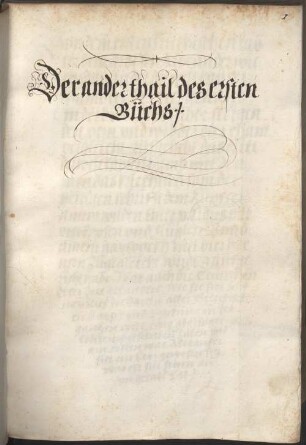 1
Der ander thail des ersten
Büchs /.